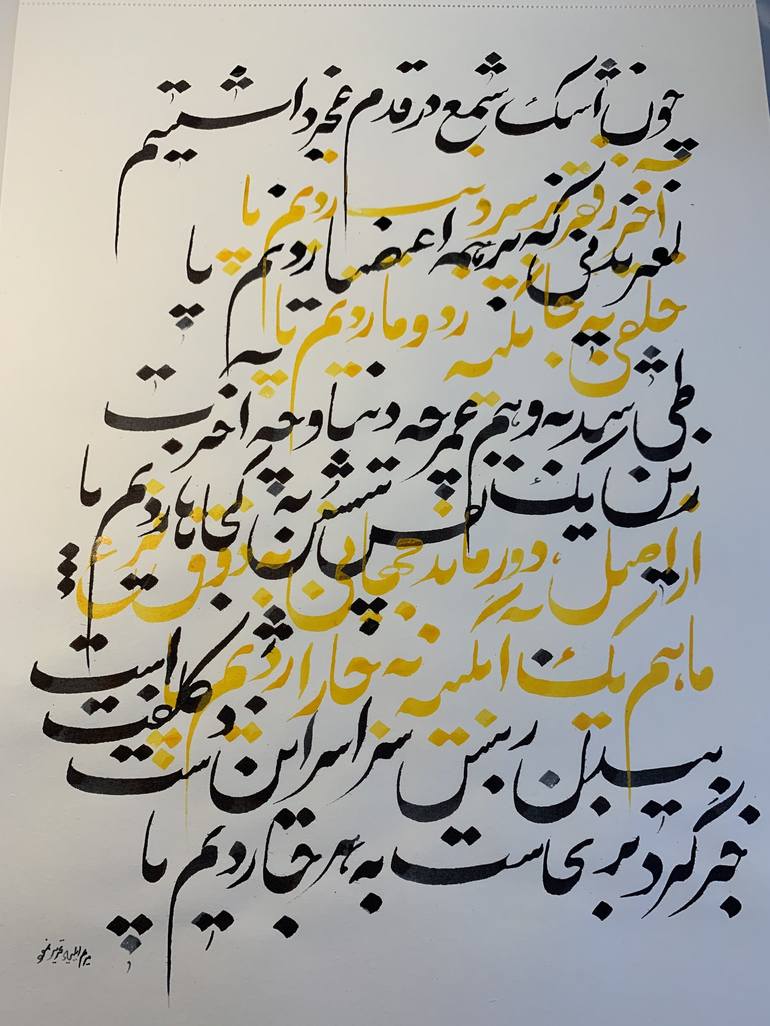 چون اشک شمع در قدم عجز داشتیم
آخر ز فقر بر سر دنیا زدیم پا
لغزیدنی که بر همه اعضا زدیم پا
خلقی به جاه تکیه زد و ما زدیم پا
طی شد به وهم عمر چه دنیا و چه آخرت
زین یک نفس تپش به کجاها زدیم پا
از اصل دور ماند جهانی به ذوق فرع
ما هم یک آبگینه به خارا زدیم پا
بیدل ز بس سراسر این دشت کلفت است
جز گرد برنخاست به هر جا زدیم پا